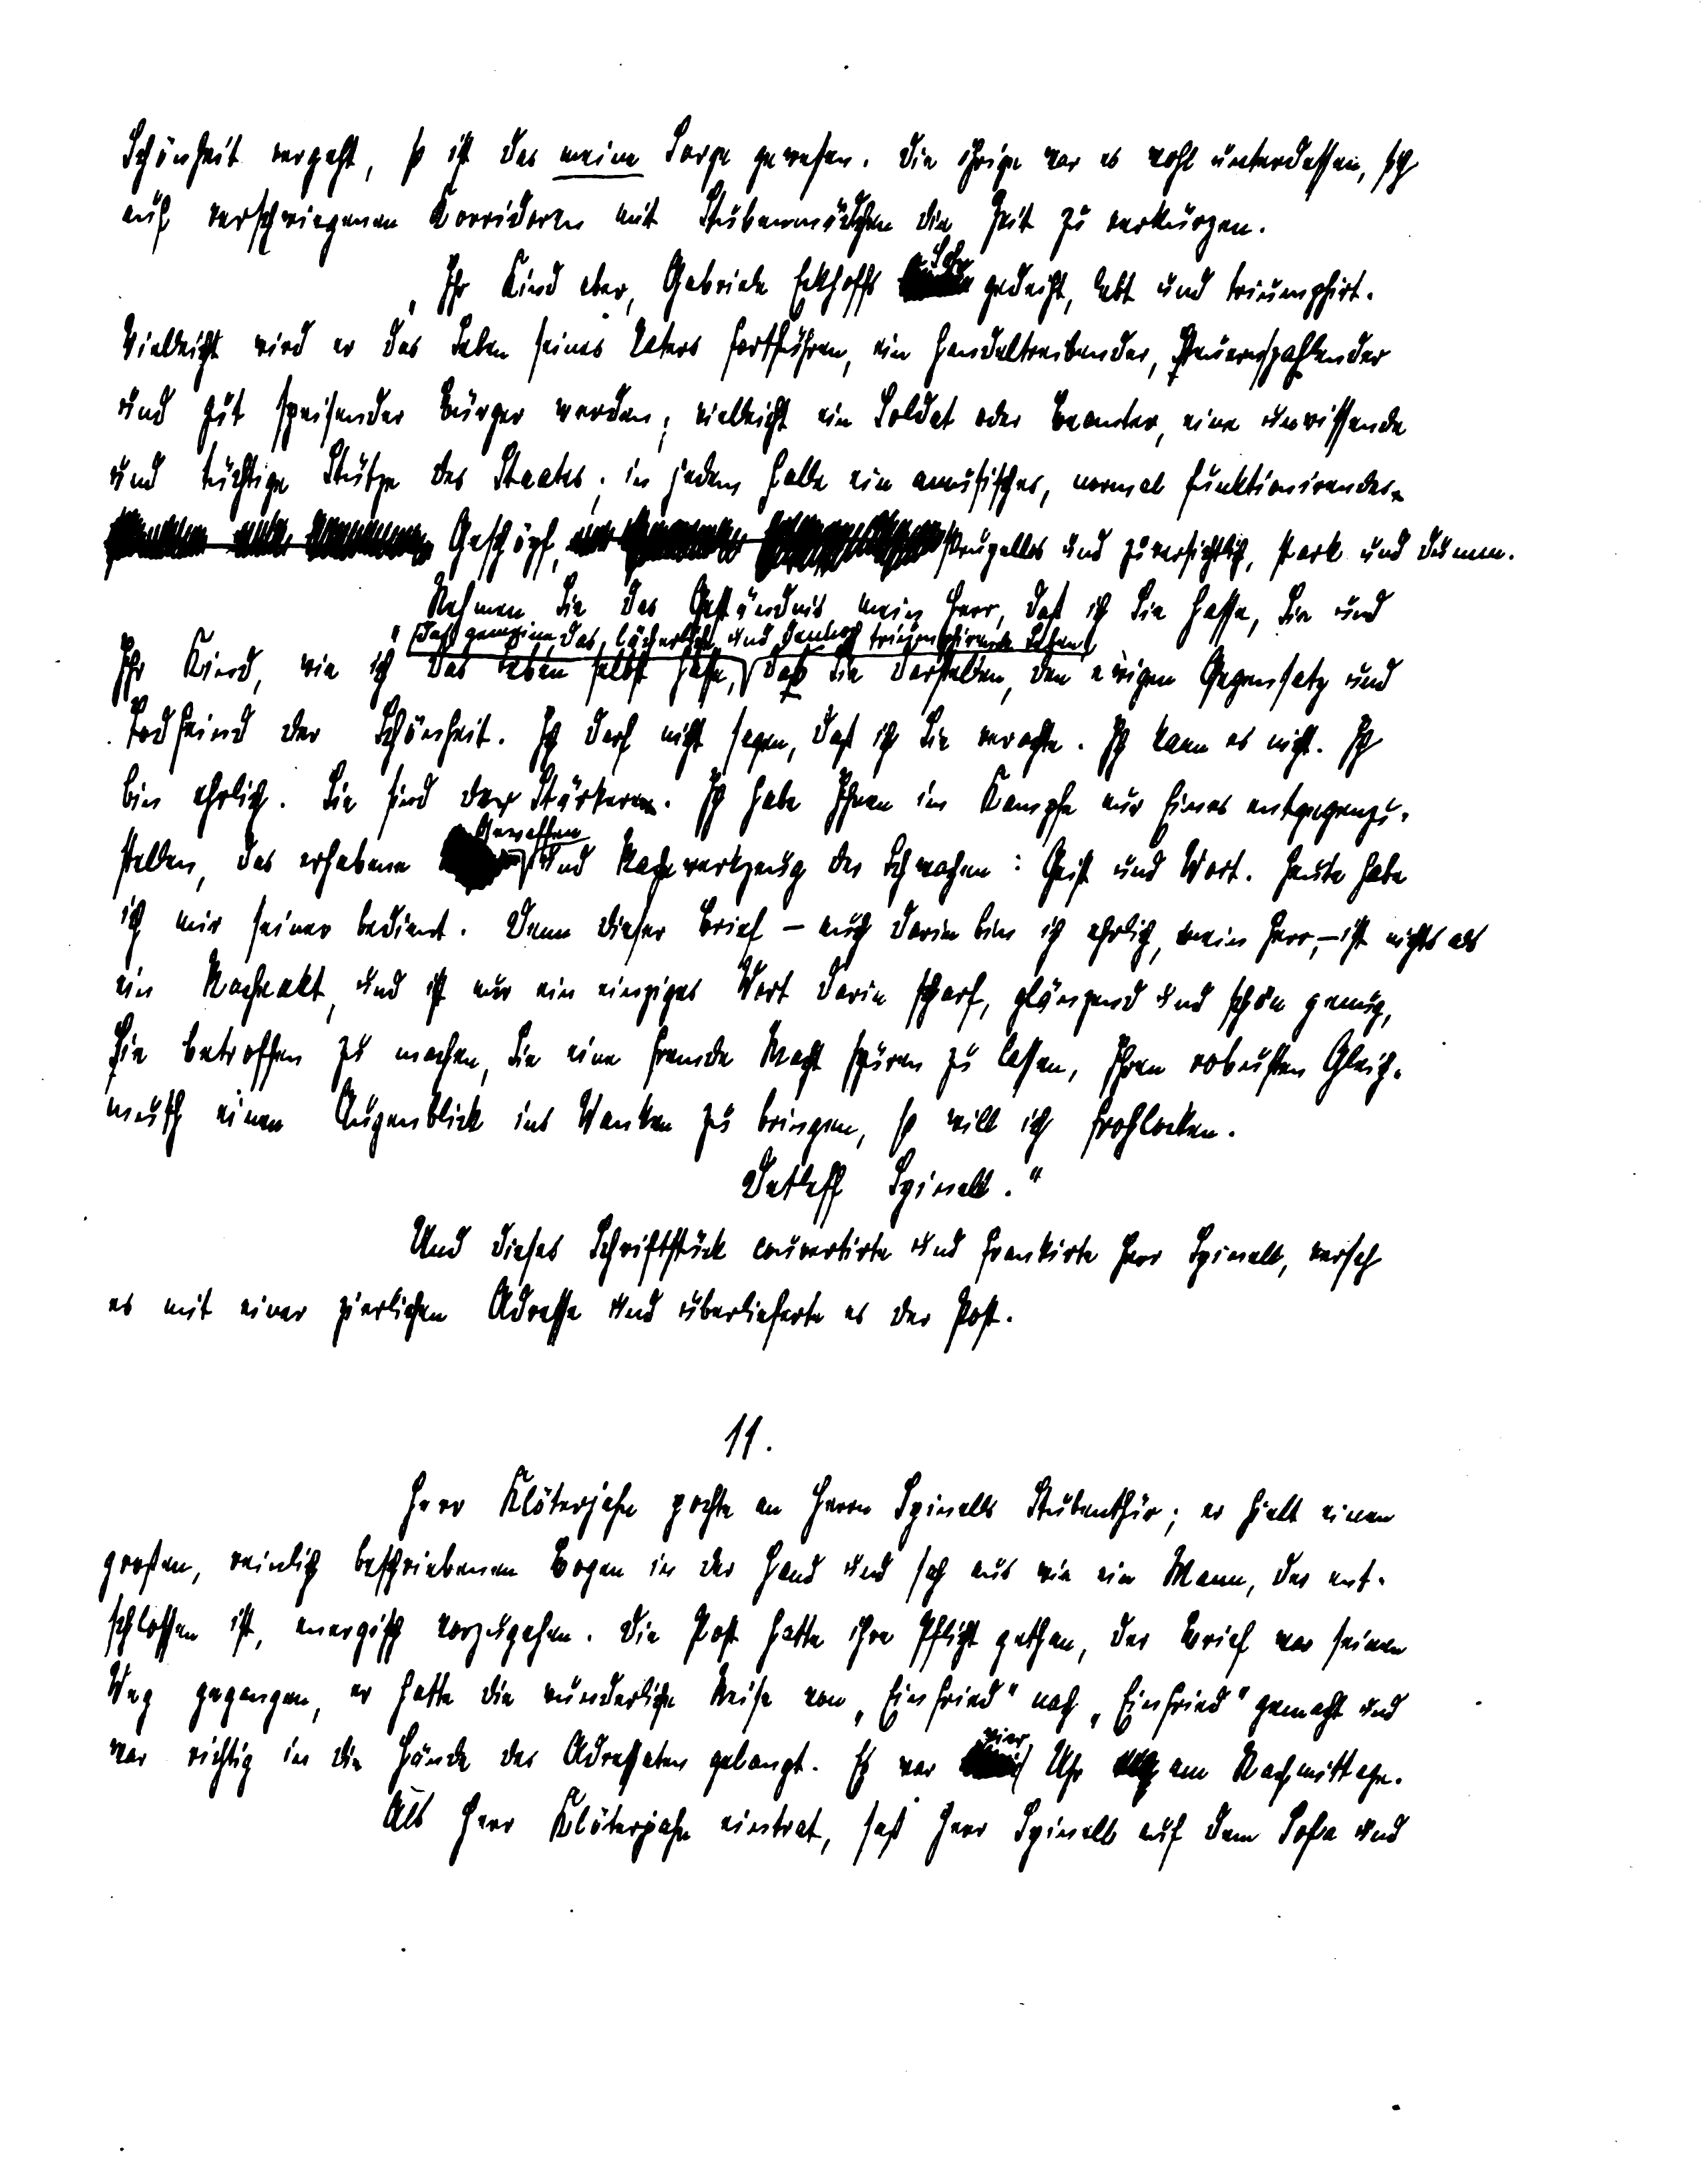 Schönheit vergeht, so ist das meine Sorge gewesen. Die ihrige war es wohl unterdessen, sich
auf verschwiegenen Korridoren mit Stubenmädchen die Zeit zu verkürzen.
Sohn
„Ihr Kind aber, Gabriele Eckhoffs gedeiht, lebt und triumphirt.
Vielleicht wird er das Leben seines Vaters fortführen, ein handeltreibender, Steuernzahlender
und gut speisender Bürger werden; vielleicht ein Soldat oder Beamter, eine unwissende
und tüchtige Stütze des Staates; in jedem Falle ein amusisches, normal funktionirendes
Geschöpf, skrupellos und zuversichtlich, stark und dumm.
Nehmen Sie das Geständnis mein Herr, daß ich Sie hasse, Sie und
das gemeine, das lächerliche und dennoch triumphirende Leben
Ihr Kind, wie ich das Leben selbst hasse, das Sie darstellen, den ewigen Gegensatz und
Todfeind der Schönheit. Ich darf nicht sagen, daß ich Sie verachte. Ich kann es nicht. Ich
bin ehrlich. Sie sind der Stärkere. Ich habe Ihnen im Kampfe nur Eines entgegenzu-
Gewaffen
stellen, das erhabene und Rachewerkzeug des Schwachen: Geist und Wort. Heute habe
ich mir seiner bedient. Denn dieser Brief – auch darin bin ich ehrlich, mein Herr, – ist nichts als
ein Racheakt, und ist nur ein einziges Wort darin scharf, glänzend und schön genug,
Sie betroffen zu machen, Sie eine fremde Macht spüren zu lassen, Ihren robusten Gleich-
muth einen Augenblick ins Wanken zu bringen, so will ich frohlocken.
Detleff Spinell.“
Und dieses Schriftstück couvertirte und frankirte Herr Spinell, versah
es mit einer zierlichen Adresse und überlieferte es der Post.
11.
Herr Klöterjahn pochte an Herrn Spinells Stubenthür; er hielt einen
großen, reinlich beschriebenen Bogen in der Hand und sah aus wie ein Mann, der ent-
schlossen ist, energisch vorzugehen. Die Post hatte ihre Pflicht gethan, der Brief war seinen
Weg gegangen, er hatte die wunderliche Reise von „Einfried“ nach „Einfried“ gemacht und
vier
war richtig in die Hände des Adressaten gelangt. Es war Uhr am Nachmittage.
Als Herr Klöterjahn eintrat, saß Herr Spinell auf dem Sofa und